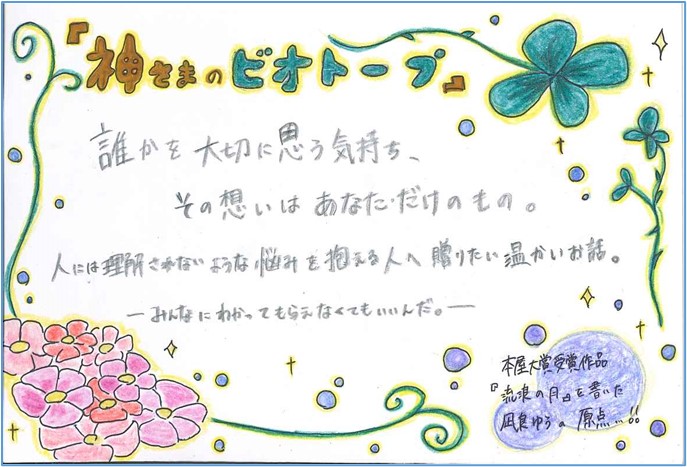 『神さまのビオトープ』
誰かを大切に思う気持ち、
その想いはあなただけのもの。
人には理解されないような悩みを抱える人へ贈りたい温かいお話。
―みんなにわかってもらえなくてもいいんだ。―
本屋大賞受賞作品
『流浪の月』を書いた
凪良ゆうの原点…!!